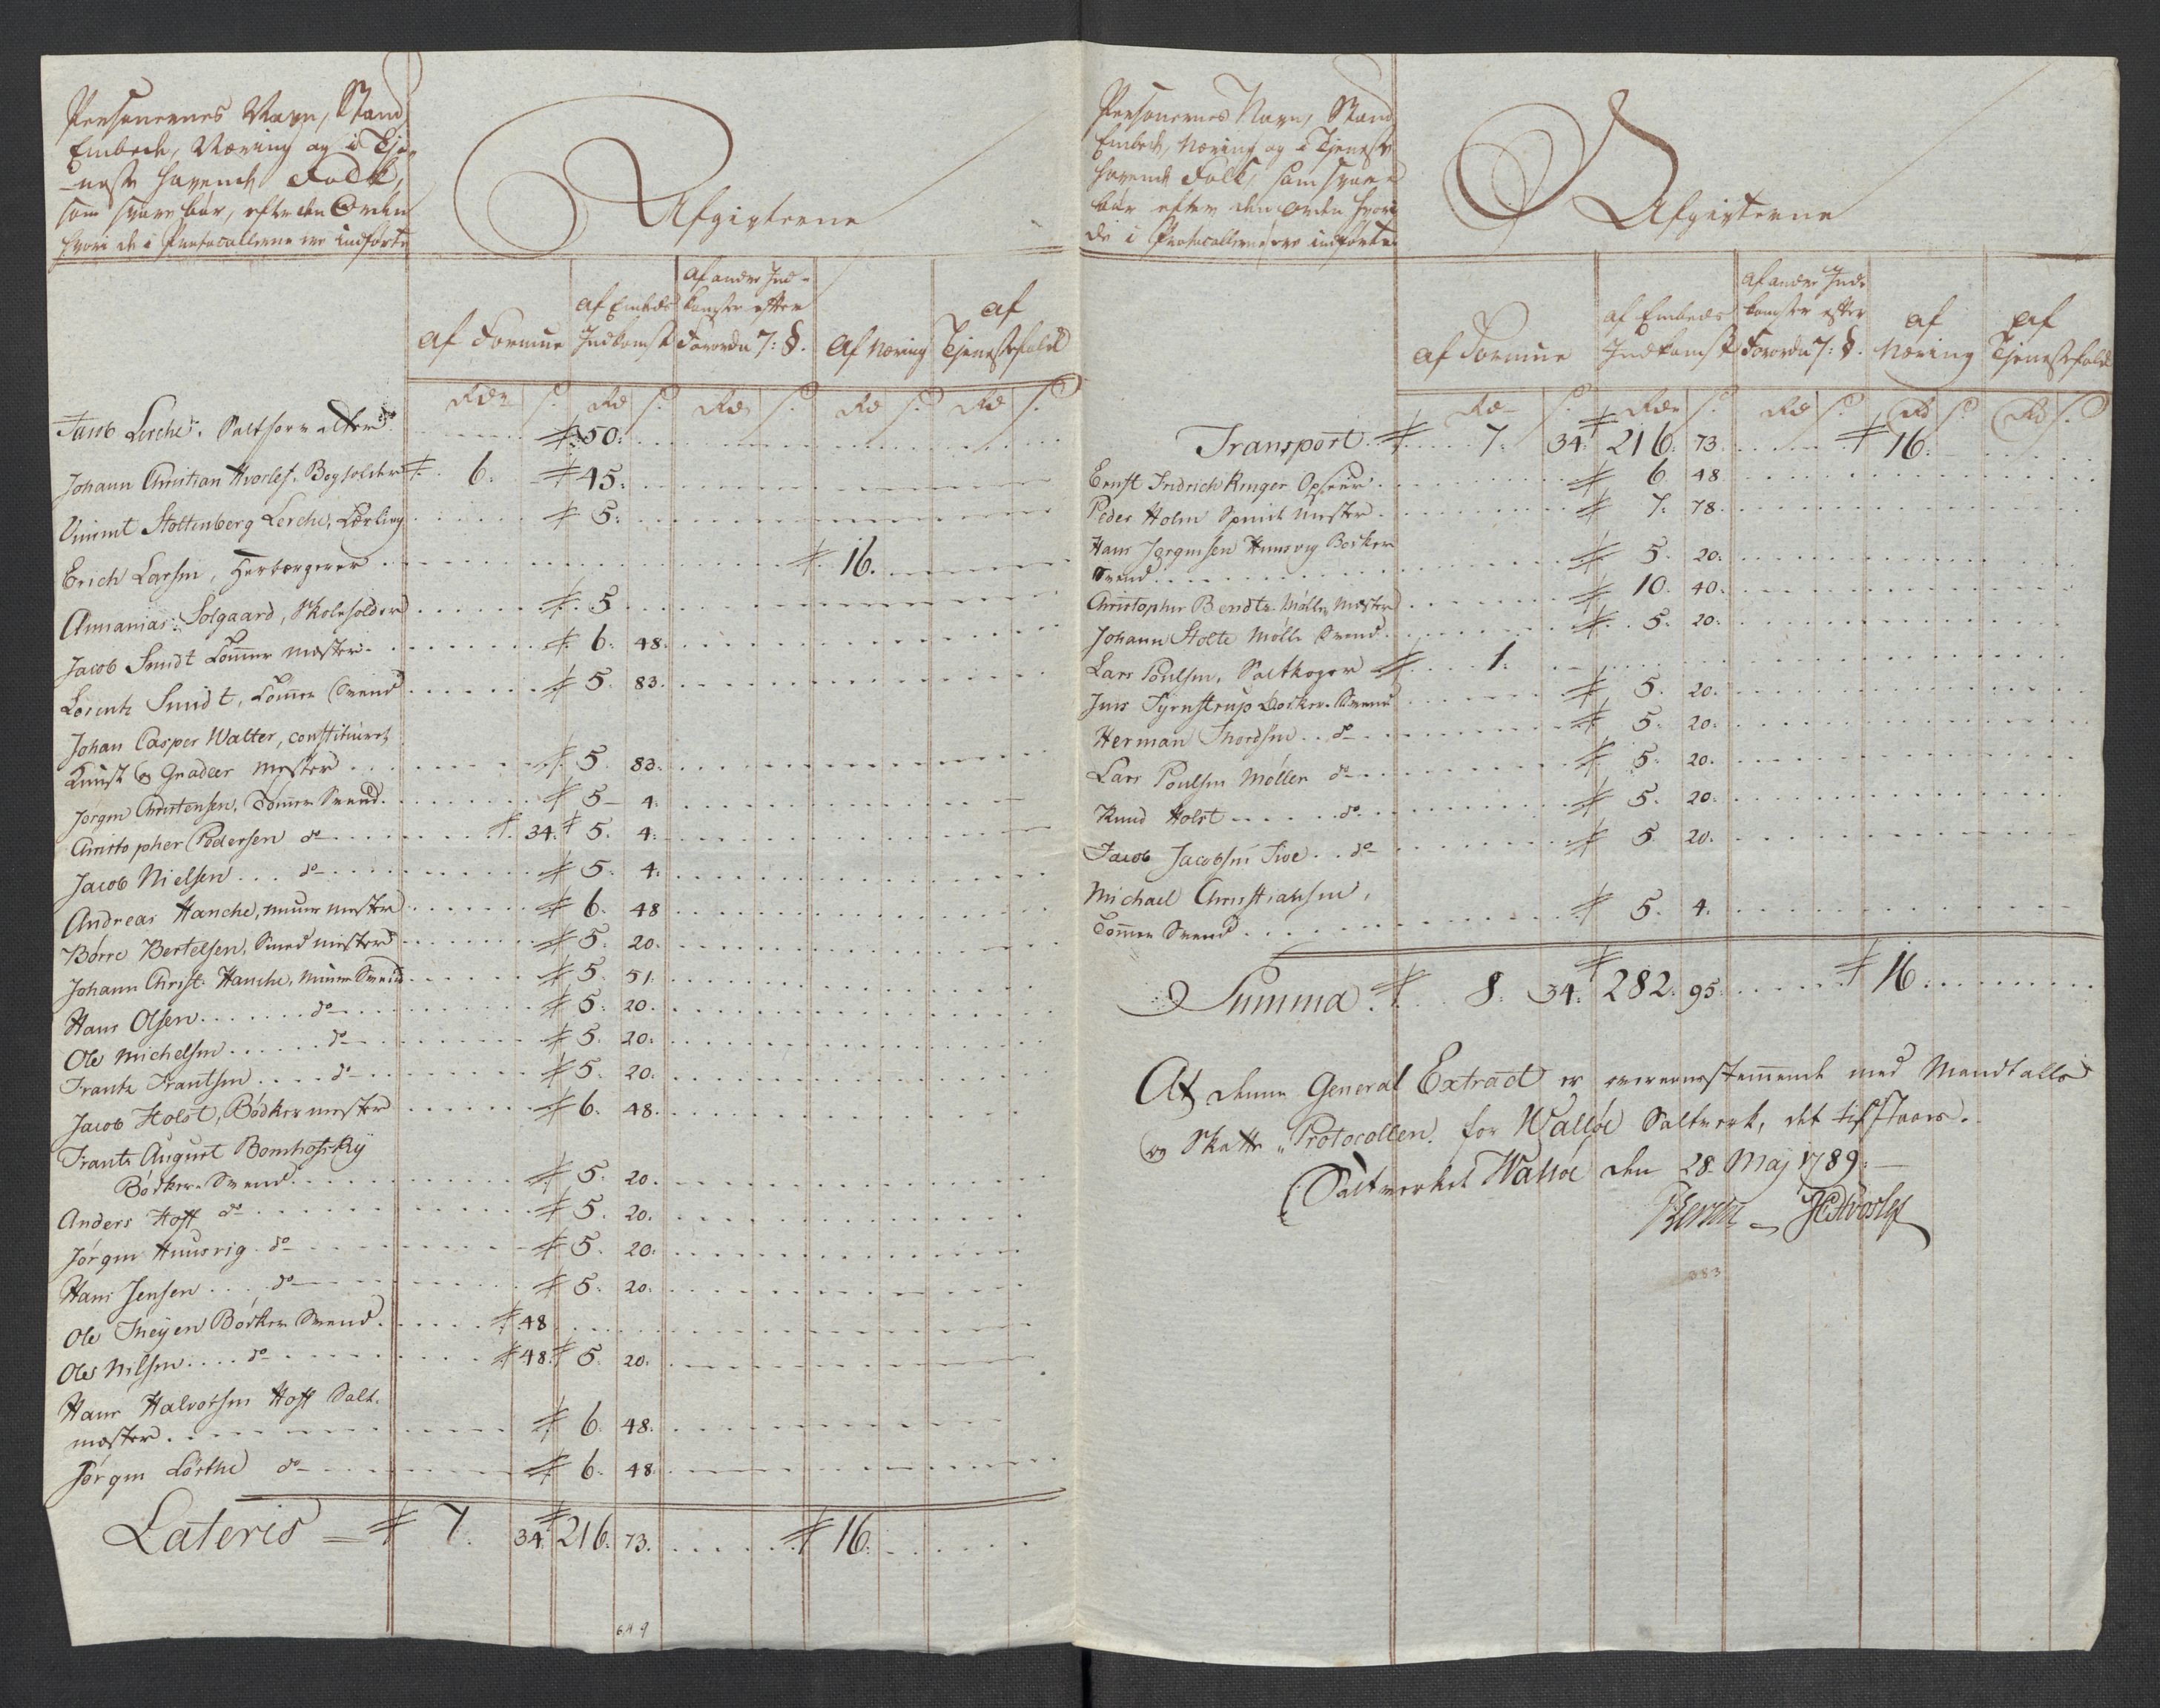 Personernes Navn, Stand
Embede, Næring og i Tje-
neste havende Folk,
som svare bør, efter den Orden
hvori de i Protocollerne ere indførte
Afgivterne
af Formue
af Embeds Indkomst
af andre Ind-
komster efter
Forordn 7: §.
af Næring
af
Tjenestefolk
Rdr s. Rd s. Rd s. Rd s. Rd s.
Jacob Lerche, Saltforvalter 50.
Johann Christian Hvoslef, Bogholder 6. 45.
Vincent Stoltenberg Lerche, Lærling 5.
Erich Larsen, Herbergerer 16.
Annanias Solgaard, Skoleholder 5
Jacob Smidt Tømmer mester 6. 48.
Lorentz Smidt, Tømmer Svend 5. 83.
Johan Casper Walter, constitueret
Kunst og Gradeer mester 5. 83.
Jørgen Christensen, Tømmer Svend. 5 4.
Christopher Pedersen do 34. 5. 4.
Jacob Nielsen do 5. 4.
Andreas Hanche, muur mester 6. 48
Børre Bertelsen, Smed mester 5. 20.
Johann Christ. Hanche, muur Svend 5. 51.
Hans Olsen do 5. 20.
Ole Michelsen do 5. 20.
Frantz Frantsen do 5. 20.
Jacob Holst, Bødker mester 6. 48.
Frantz August
Bødker Svend 5. 20.
Anders Hoff do 5. 20.
Jørgen Huusvig do 5. 20.
Hans Jensen do 5. 20.
Ole Theyen Bødker Svend. 48
Ole Nilsen do 48. 5. 20.
Hans Halvorsen Hoff Salt-
mester 6. 48.
Jørgen Lørthe do 6. 48.
Lateris 7. 34. 216. 73. 16.
649
Personernes Navn, Stand
Embede, Næring og i Tjeneste
havende Folk, som svare
bør efter den Orden hvori
de i Protocollerne ere indførte
Afgivterne
af Formue
af Embeds
Indkomst
af andre Ind-
komster efter
Forordn 7: §.
af
Næring
af
Tjenestefolk
Rdr s. Rdr s. Rd s. Rd s. Rd s.
Transport 7. 34. 216. 73. 16.
Ernst Fridrich Ringer Opseer 6. 48.
Peder Holm mester 7. 78.
Hans Jørgensen Huusvig Bødker
Svend 5. 20.
Christopher Bendtz Mølle Mester 10. 40.
Johann Stolte Mølle Svend. 5. 20.
Lars Poulsen, Saltkoger 1.
Jens Tyrnstrup Bødker Svend 5. 20.
Herman Thordsen do 5. 20.
Lars Poulsen Møller do 5. 20.
Knud Holst do 5. 20.
Jacob Jacobsen do 5. 20.
Michael Christiansen,
Tømmer Svend 5. 4.
Summa 8. 34. 282. 95. 16.
At denne General Extract er overeensstemmende med Mandtalls
og Skatte Protocollen for Walløe Saltverk, det tilstaaes.
Saltverket Walløe den 28 Maj 1789.
Lerche JCHvoslef
383